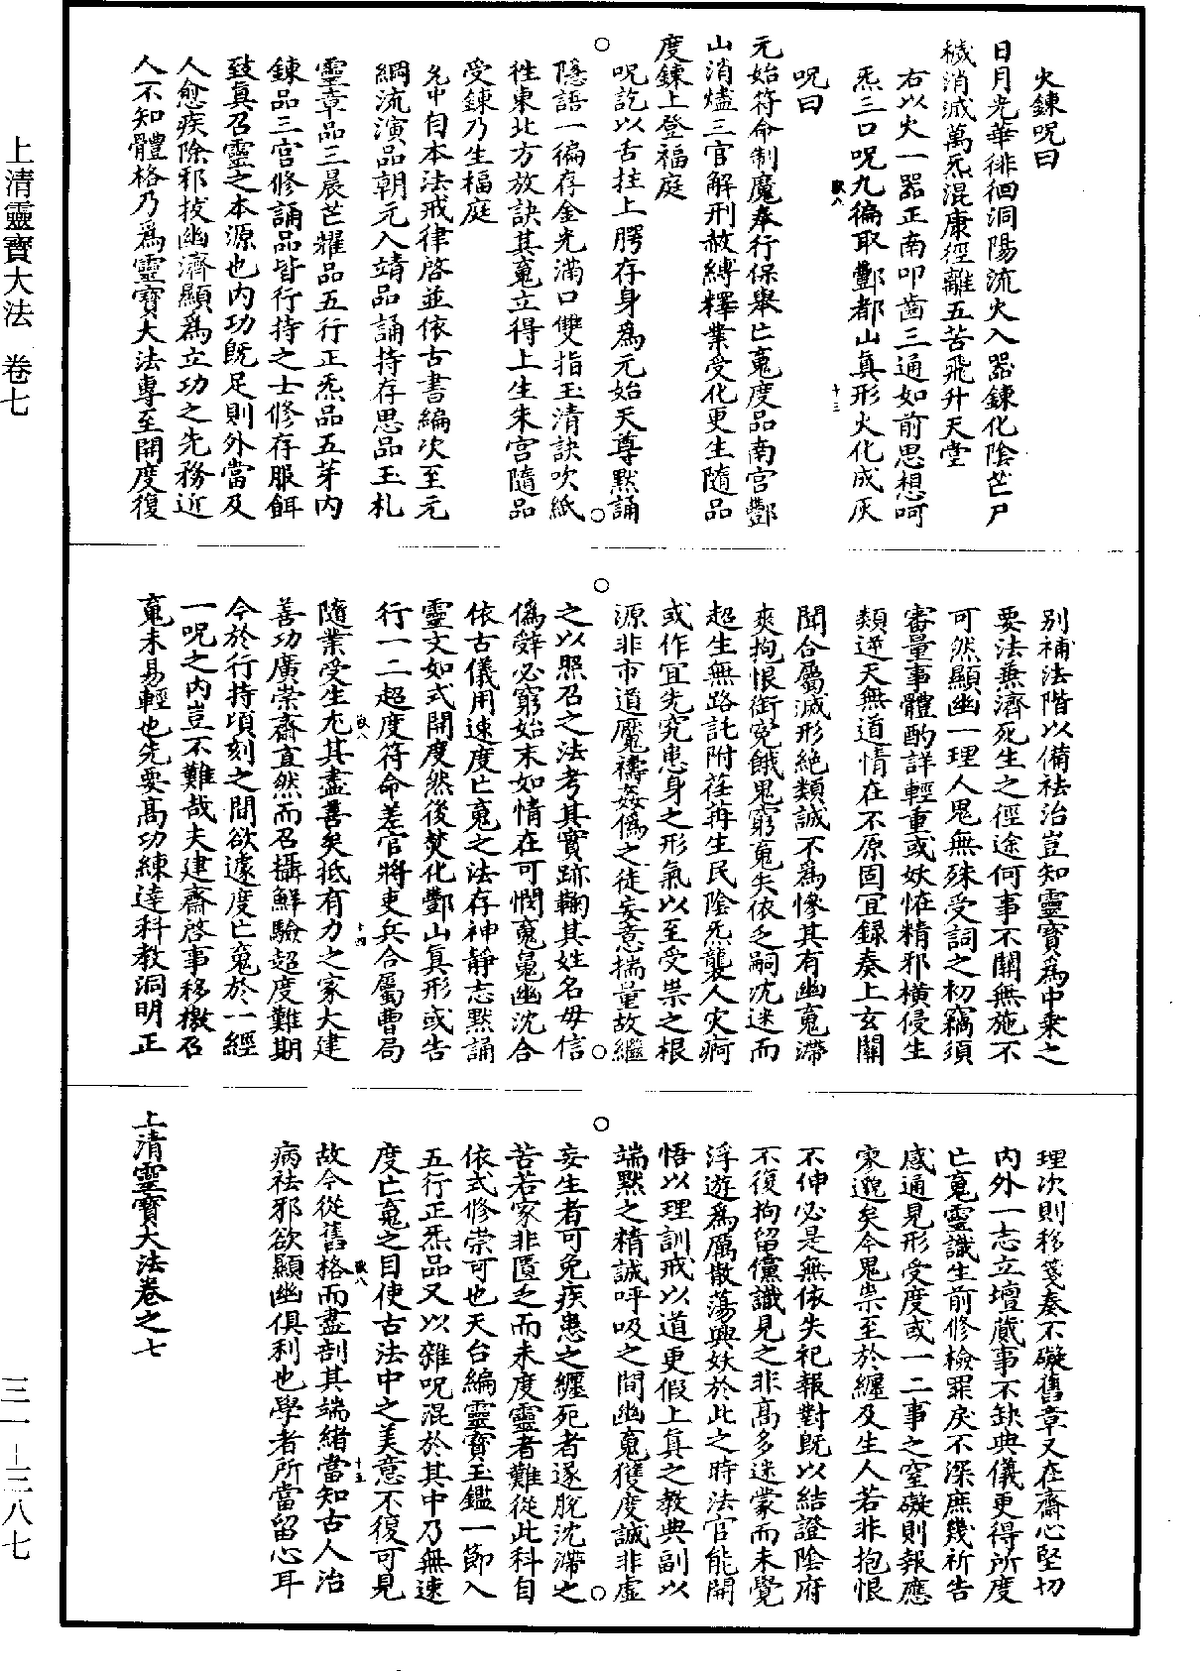 火鍊呪曰
日月光華徘徊洞陽流火入器鍊化陰芒尸
穢消滅萬炁混康徑離五苦飛升天堂
右以火一器正南叩齒三通如前思想呵
炁三口呪九徧取酆都山真形火化成灰
呪曰
元始符命制魔奉行保舉亡䰟度品南宮酆
山消爐三官解刑赦縛釋業受化更生隨品
度鍊上登福庭
呪訖以舌拄上腭存身為元始天尊默誦
隱語一徧存金光滿口雙指玉清訣吹紙
徃東北方放訣其䰟立得上生朱宮隨品
受鍊乃生福庭
允中自本法戒律啓並依古書編次至元
綱流演品朝元入靖品誦持存思品玉札
靈章品三晨芒耀品五行正炁品五芽内
鍊品三宮修誦品皆行持之士修存服餌
致真召靈之本源也内功既足則外當及
人愈疾除邪拔幽濟顯為立功之先務近
人不知體格乃為靈寶大法專至開度復
別補法階以備祛治豈知靈寶為中乘之
要法兼濟死生之徑途何事不關無施不
可然顯幽一理人鬼無殊受詞之初竊須
審量事體酌詳輕重或妖怪精邪橫侵生
類逆天無道情在不原固宜録奏上玄關
聞合屬滅形絶類誠不為慘其有幽䰟滯
爽拘恨銜冤餓鬼窮䰟失依乏嗣沈迷而
超生無路託附荏苒生民陰炁襲人灾痾
或作宜先究患身之形氣以至受祟之根
源非市道魘禱姦偽之徒妄意揣量故繼
之以照召之法考其實跡鞠其姓名毋信
偽辤必窮始末如情在可憫䰟㲋幽沈合
依古儀用速度亡䰟之法存神靜志默誦
靈文如式開度然後焚化酆山真形或告
行一二超度符命差官將吏兵合屬曹局
隨業受生尤其盡善矣抵有力之家大建
善功廣崇齋直然而召攝鮮驗超度難期
今於行持頃刻之間欲遽度亡䰟於一經
一呪之内豈不難哉夫建齋啓事移檄召
䰟未易輕也先要高功練達科教洞明正
理次則移箋奏不礙舊章又在齋心堅切
内外一志立壇蕆事不缺典儀更得所度
亡䰟靈識生前修檢罪戾不深庶幾祈告
感通見形受度或一二事之窒礙則報應
寂邈矣今鬼祟至於纏及生人若非抱恨
不伸必是無依失祀報對既以結證陰府
不復拘留儻識見之非高多迷蒙而未覺
浮遊為厲散蕩興妖於此之時法官能開
悟以理訓戒以道更假上真之教典副以
端默之精誠呼吸之間幽䰟獲度誠非虛
妄生者可免疾患之纒死者遂脫沈滯之
苦若家非匱乏而未度靈者難從此科自
依式修崇可也天台編靈寶玉鑑一節入
五行正炁品又以雜呪混於其中乃無速
度亡䰟之目使古法中之美意不復可見
故今從舊格而盡剖其端緒當知古人治
病祛邪欲顯幽俱利也學者所當留心耳
上清靈寶大法卷之七
上清靈寶大法 卷七
三一－二八七